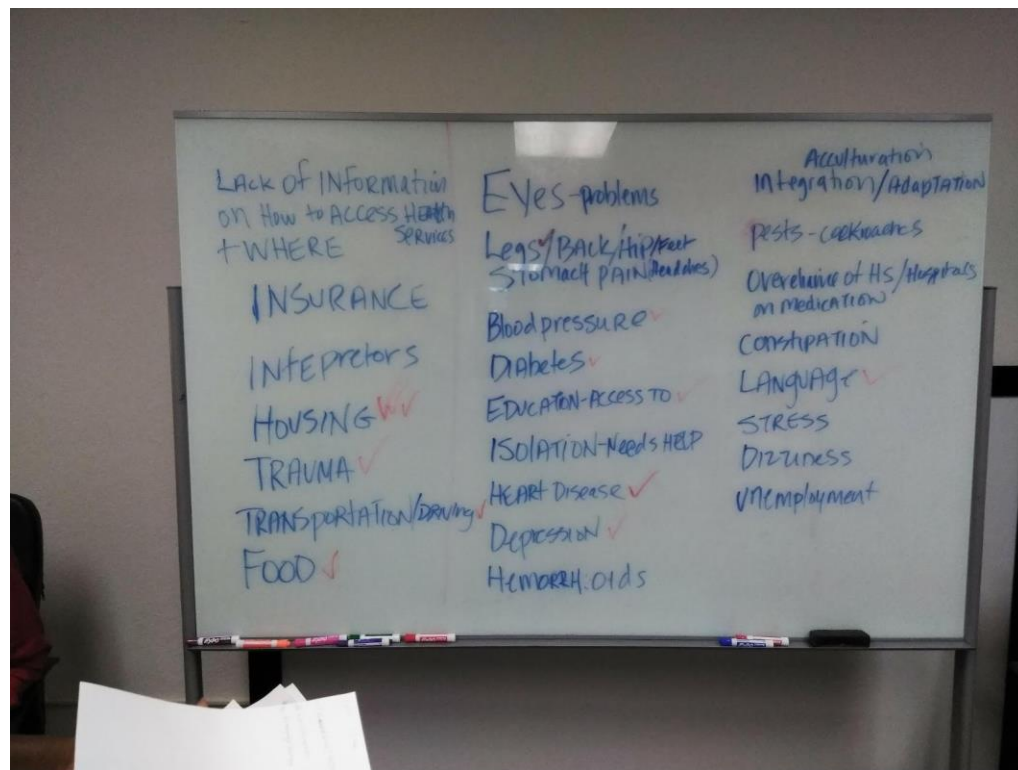 Lack of Information
on How to Access Health
Services
+ WHERE
INSURANCE
Intepretors
HOUSING
TRAUMA
TRANSportATION/Driving
FOOD
Eyes-problems
Legs/BACK/Hip/Feet
Stomach PAIN (Headaches)
Blood pressure
Diabetes
EDUCATION-ACCESS TO
ISOlATION-Needs HELP
HEART Disease
Depression
HEMORRH.OIds
Acculturation
Integration/ADAPTATION
pests-cockroaches
of HS/Hospitals
on medication
CONSTIPATION
LANGUAGE
STRESS
DIZZINESS
Unemployment